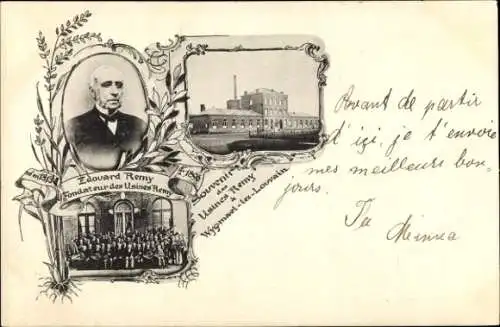 Né en 1813
† 1896
Edouard Remy
Fondateur des Usines Remy
Souvenir
des
Usines Remy
à
Wygmael-lez-Louvain
Avant de partir
d'ici je t'envoie
mes meilleurs bon-
jours.
Ta
Meinra